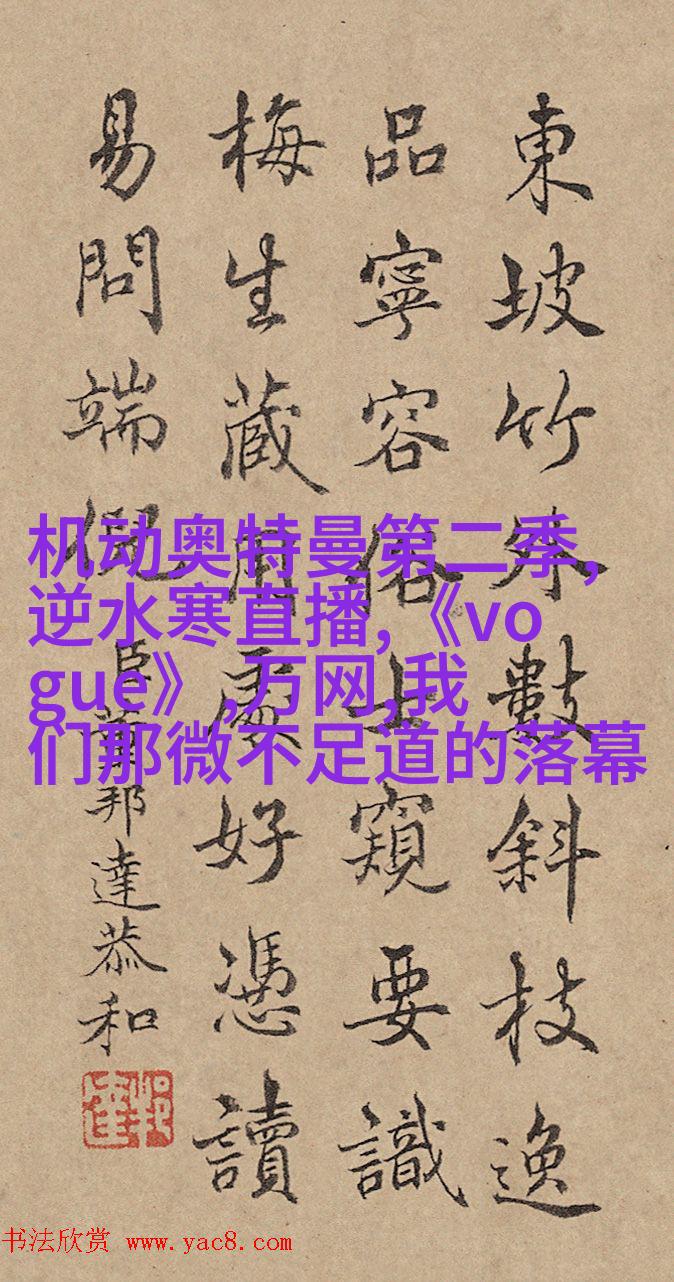 東坡竹外數斜枝逸
品寧容俗士窺要識
梅生藏用處好憑讀
易問端倪
臣董邦達恭和
机动奥特曼第二季,
逆水寒直播,《vo
gue》,万网,我
们那微不足道的落幕
书法欣赏 www.yac8.com